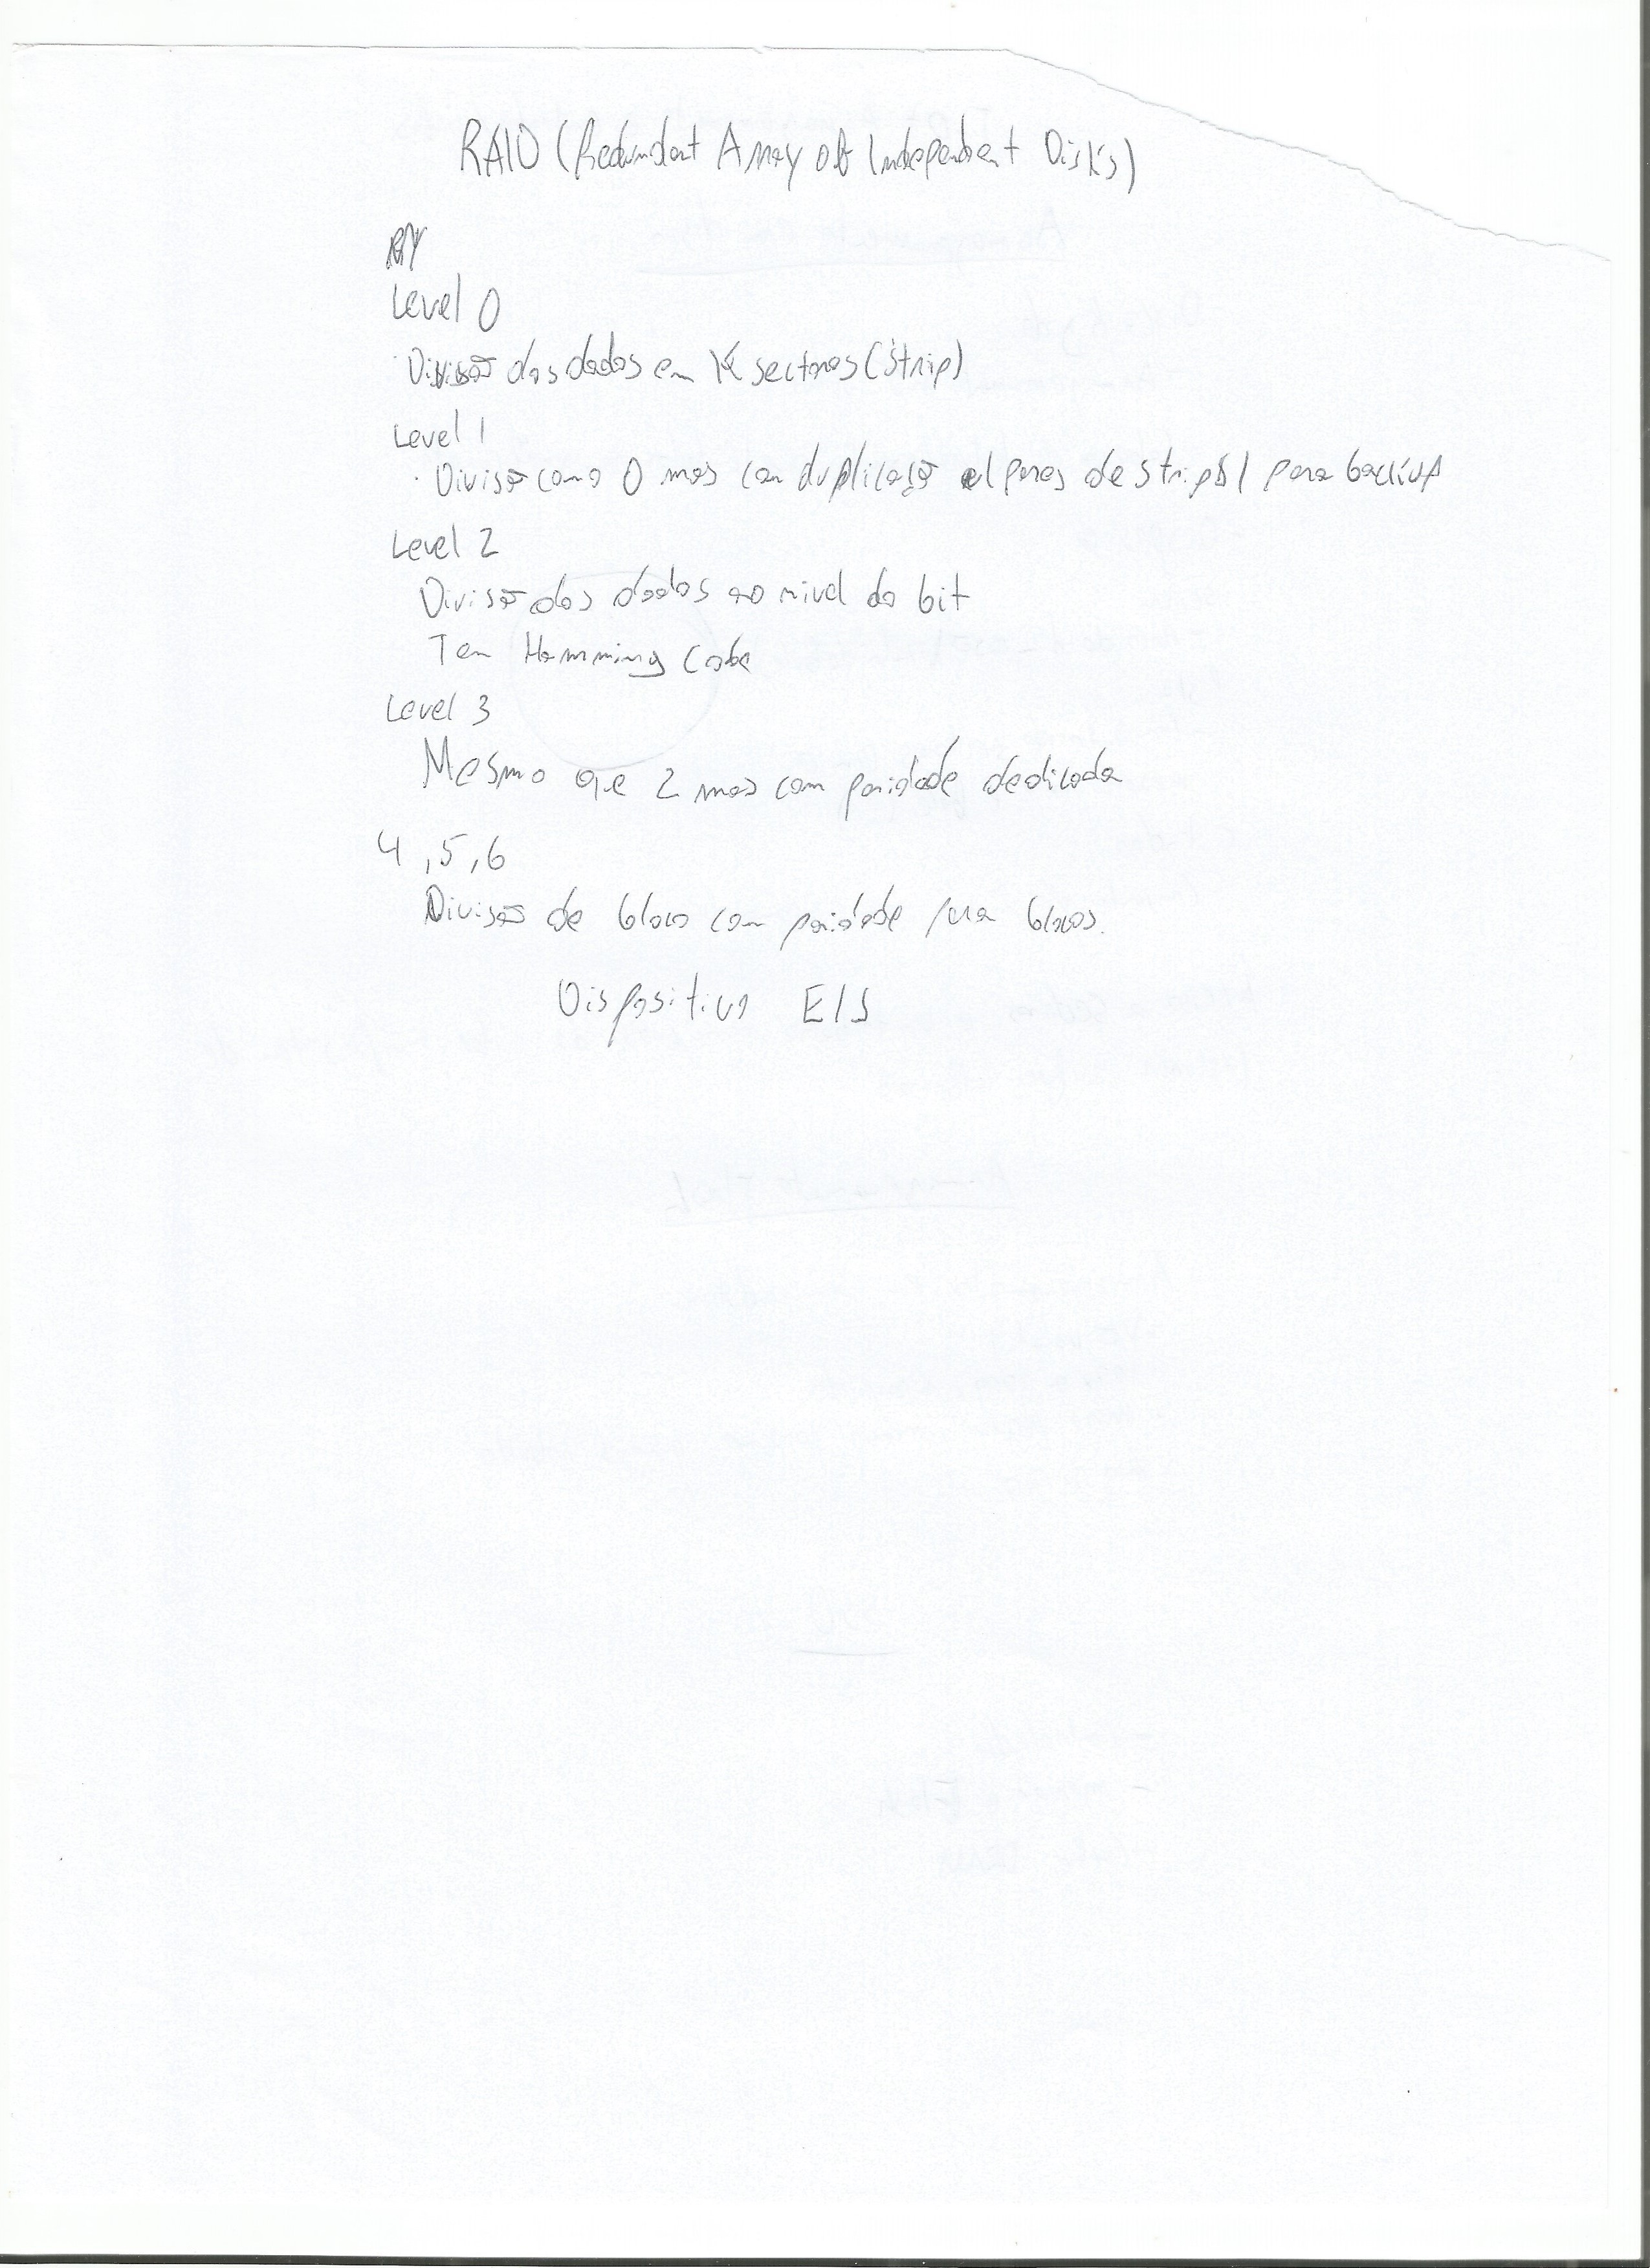 RAID (Redundant Array of Independent Disks)
Level 0
· Divisão dos dados em K sectores (Strip)
Level 1
· Divisão como 0 mas com duplicação pares de strips para backup
Level 2
Divisão dos dados ao nivel do bit
Tem Hamming Code
Level 3
Mesmo que 2 mas com paridade dedicada
4, 5, 6
Divisão de bloco com paridade para blocos.
Dispositivo E/S